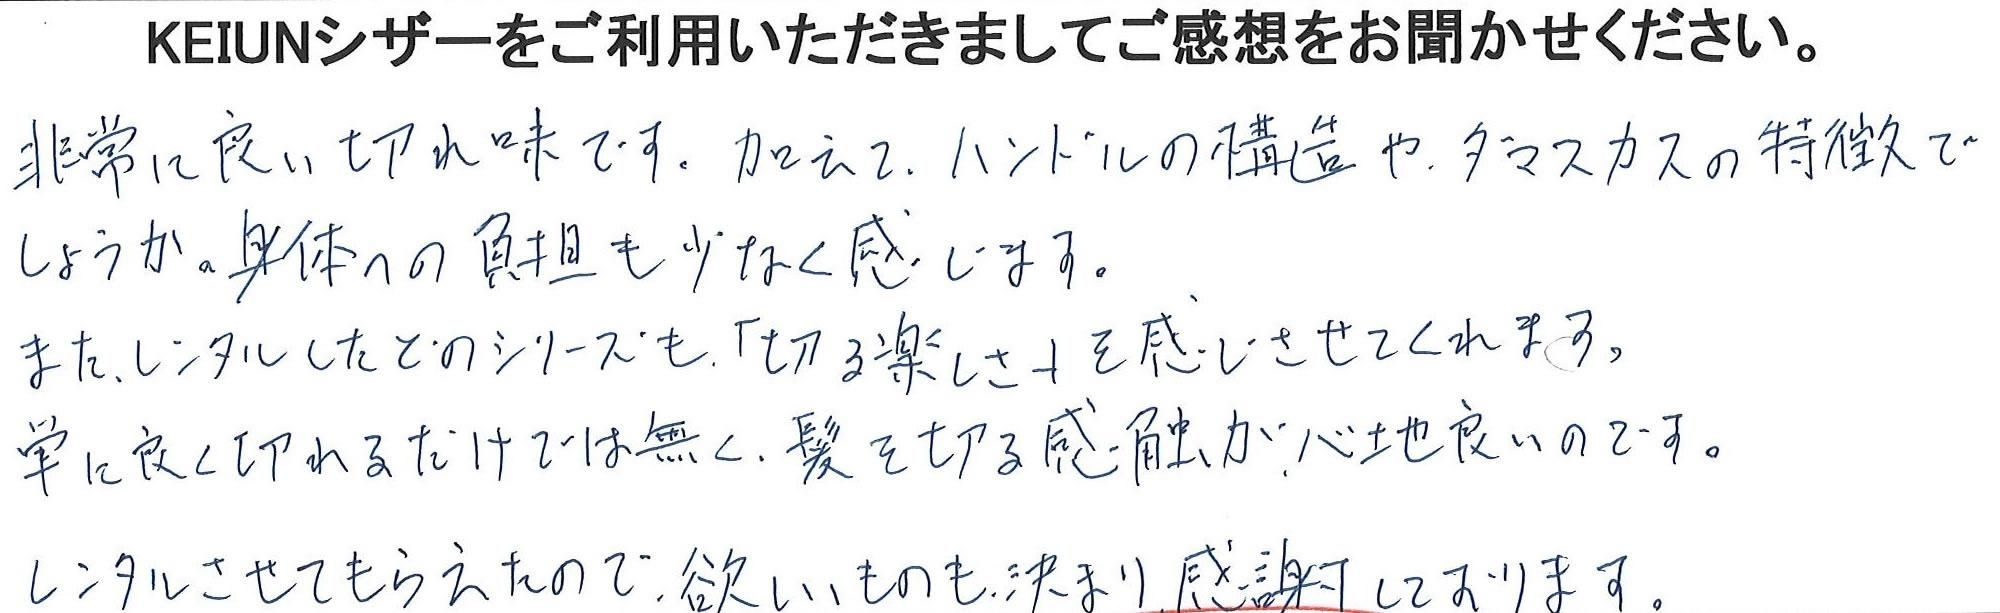 KEIUNシザーをご利用いただきましてご感想をお聞かせください。
非常に良い切れ味です。加えて、ハンドルの構造や、ダマスカスの特徴で
しょうか。身体への負担も少なく感じます。
また、レンタルしたどのシリーズも、「切る楽しさ」を感じさせてくれます。
単に良く切れるだけでは無く、髪を切る感触が、心地良いのです。
レンタルさせてもらえたので、欲しいものも、決まり、感謝しております。